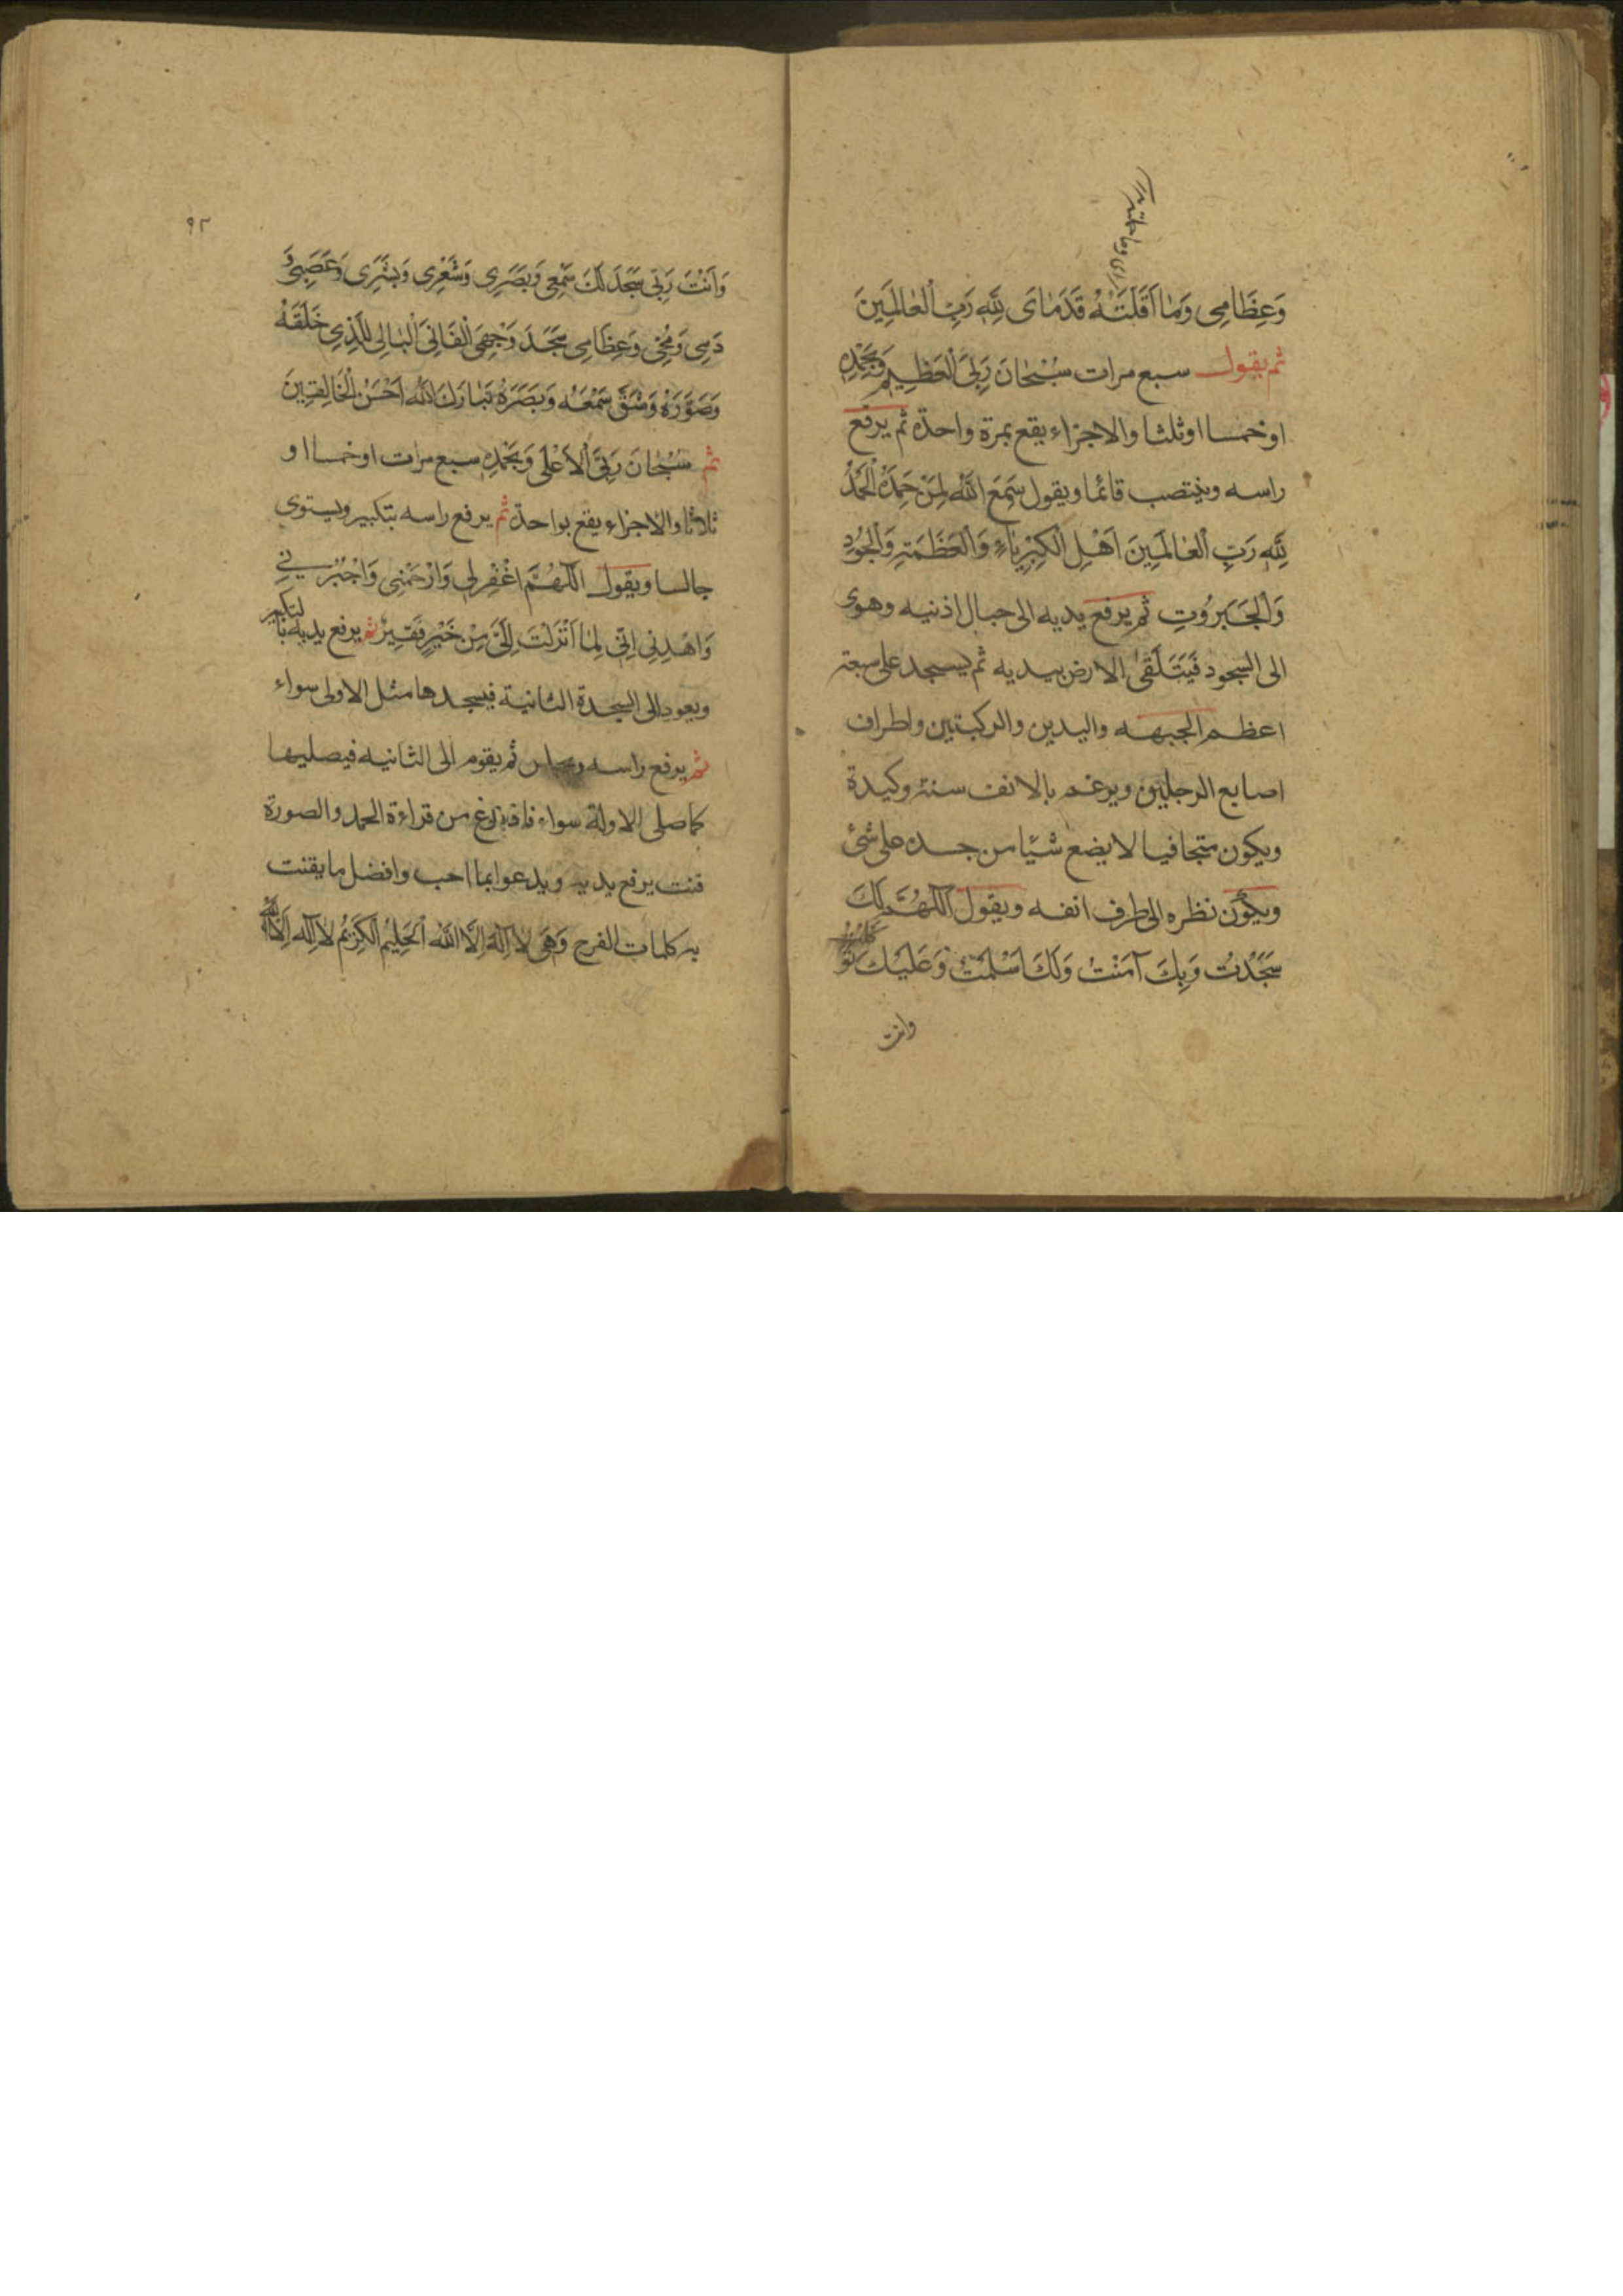 وَعِظَامِی وَمَا اَقَلَّتْهُ قَدَمَایَ لِلّٰهِ رَبِّ الْعٰالَمِینَ
ثم یقول سبع مرات سُبْحٰانَ رَبِّیَ الْعَظِیمِ وَبِحَمْدِهِ
اوخمسا اوثلثا والاجزاء یقع بمرة واحدة ثم یرفع
راسه وینتصب قائما ویقول سَمِعَ اللّٰهُ لِمَنْ حَمِدَهُ الْحَمْدُ
لِلّٰهِ رَبِّ الْعٰالَمِینَ اَهْلِ الْکِبْرِیٰاءِ وَالْعَظَمَةِ وَالْجُودِ
وَالْجَبَرُوتِ ثم یرفع یدیه الی حبال اذنیه وهوی
الی السجود فَیَتَلَقّیٰ الارض بیدیه ثم یسجد علی سبعة
اعظم الجبهه والیدین والرکبتین واطراف
اصابع الرجلین ویرغم بالانف سنة وکیدة
ویکون متجافیا لایضع شیئا من جسده علی شئ
ویکون نظره الی طرف انفه ویقول اَللّٰهُمَّ لَکَ
سَجَدْتُ وَبِکَ آمَنْتُ وَلَکَ اَسْلَمْتُ وَعَلَیْکَ تَوَکَّلْتُ
وانت
۹۲
وَاَنْتَ رَبِّی سَجَدَ لَکَ سَمْعِی وَبَصَرِی وَشَعْرِی وَبَشَرِی وَعَصَبِی وَ
دَمِی وَمُخِّی وَعِظَامِی سَجَدَ وَجْهِیَ الْفَانِی الْبٰالِی لِلَّذِی خَلَقَهُ
وَصَوَّرَهُ وَشَقَّ سَمْعَهُ وَبَصَرَهُ تَبٰارَکَ اللّٰهُ اَحْسَنُ الْخَالِقِینَ
ثم سُبْحٰانَ رَبِّیَ الْاَعْلٰی وَبِحَمْدِهِ سبع مرات اوخمسا او
ثلاثا والاجزاء یقع بواحدة ثم یرفع راسه بتکبیر ویستوی
جالسا ویقول اَللّٰهُمَّ اغْفِرْلِی وَارْحَمْنِی وَاجْبُرْنِی
وَاهْدِنِی اِنِّی لِمٰا اَنْزَلْتَ اِلَیَّ مِنْ خَیْرٍ فَقِیرٌ ثم یرفع یدیه بالتکبیر
ویعود الی السجدة الثانیة فیسجدها مثل الاولی سواء
ثم یرفع راسه ویجلس ثم یقوم الی الثانیه فیصلیها
کما صلی الاولة سواء فاذا فرغ من قراءة الحمد والصورة
قنت یرفع یدیه ویدعوا بما احب وافضل ما یقنت
به کلمات الفرج وَهِیَ لٰا اِلٰهَ اِلَّا اللّٰهُ الْحَلِیمُ الْکَرِیمُ لٰا اِلٰهَ اِلَّا اللّٰهُ